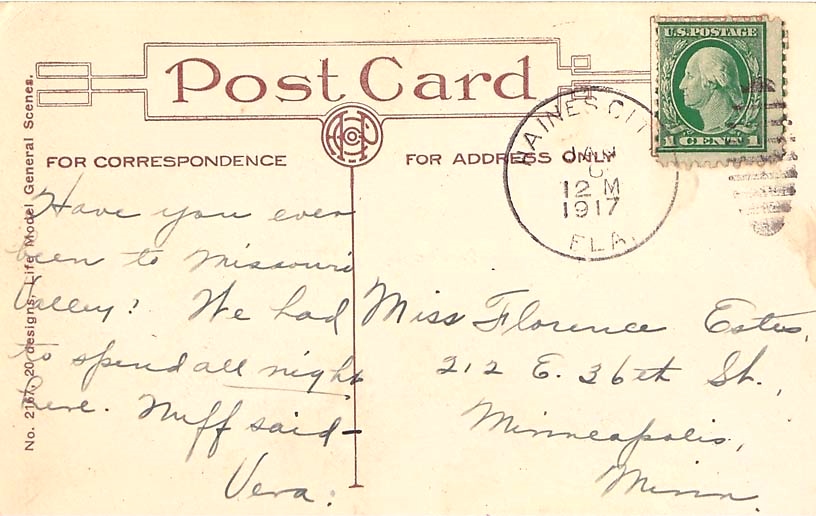 Post Card
FOR CORRESPONDENCE
FOR ADDRESS ONLY
U.S. POSTAGE
1 CENT 1
HAINES CITY
JAN
12 M
1917
FLA.
No. 2167, 20 designs, Life Model General Scenes.
Have you ever
been to Missouri
Valley? We had
to spend all night
here. Nuff said-
Vera.
Miss Florence Estes,
212 E. 36th St.,
Minneapolis,
Minn.